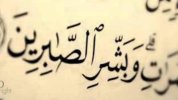 رَٰتِۗ وَبَشِّرِ ٱلصَّٰبِرِينَ